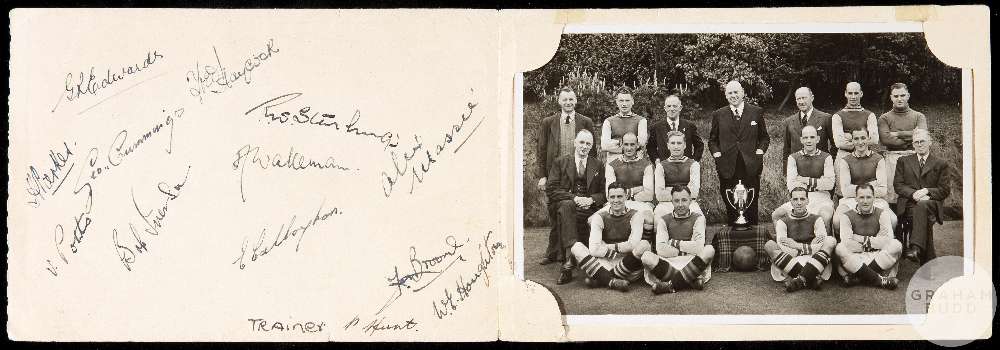 G R Edwards
Fred Haycock
Geo. Cummings
A Wakeman
Alex Massie
V. Potts
Bob Iverson
E Callaghan
F Broome
W. E. Houghton
TRAINER H Hunt.
GRAHAM
BUDD